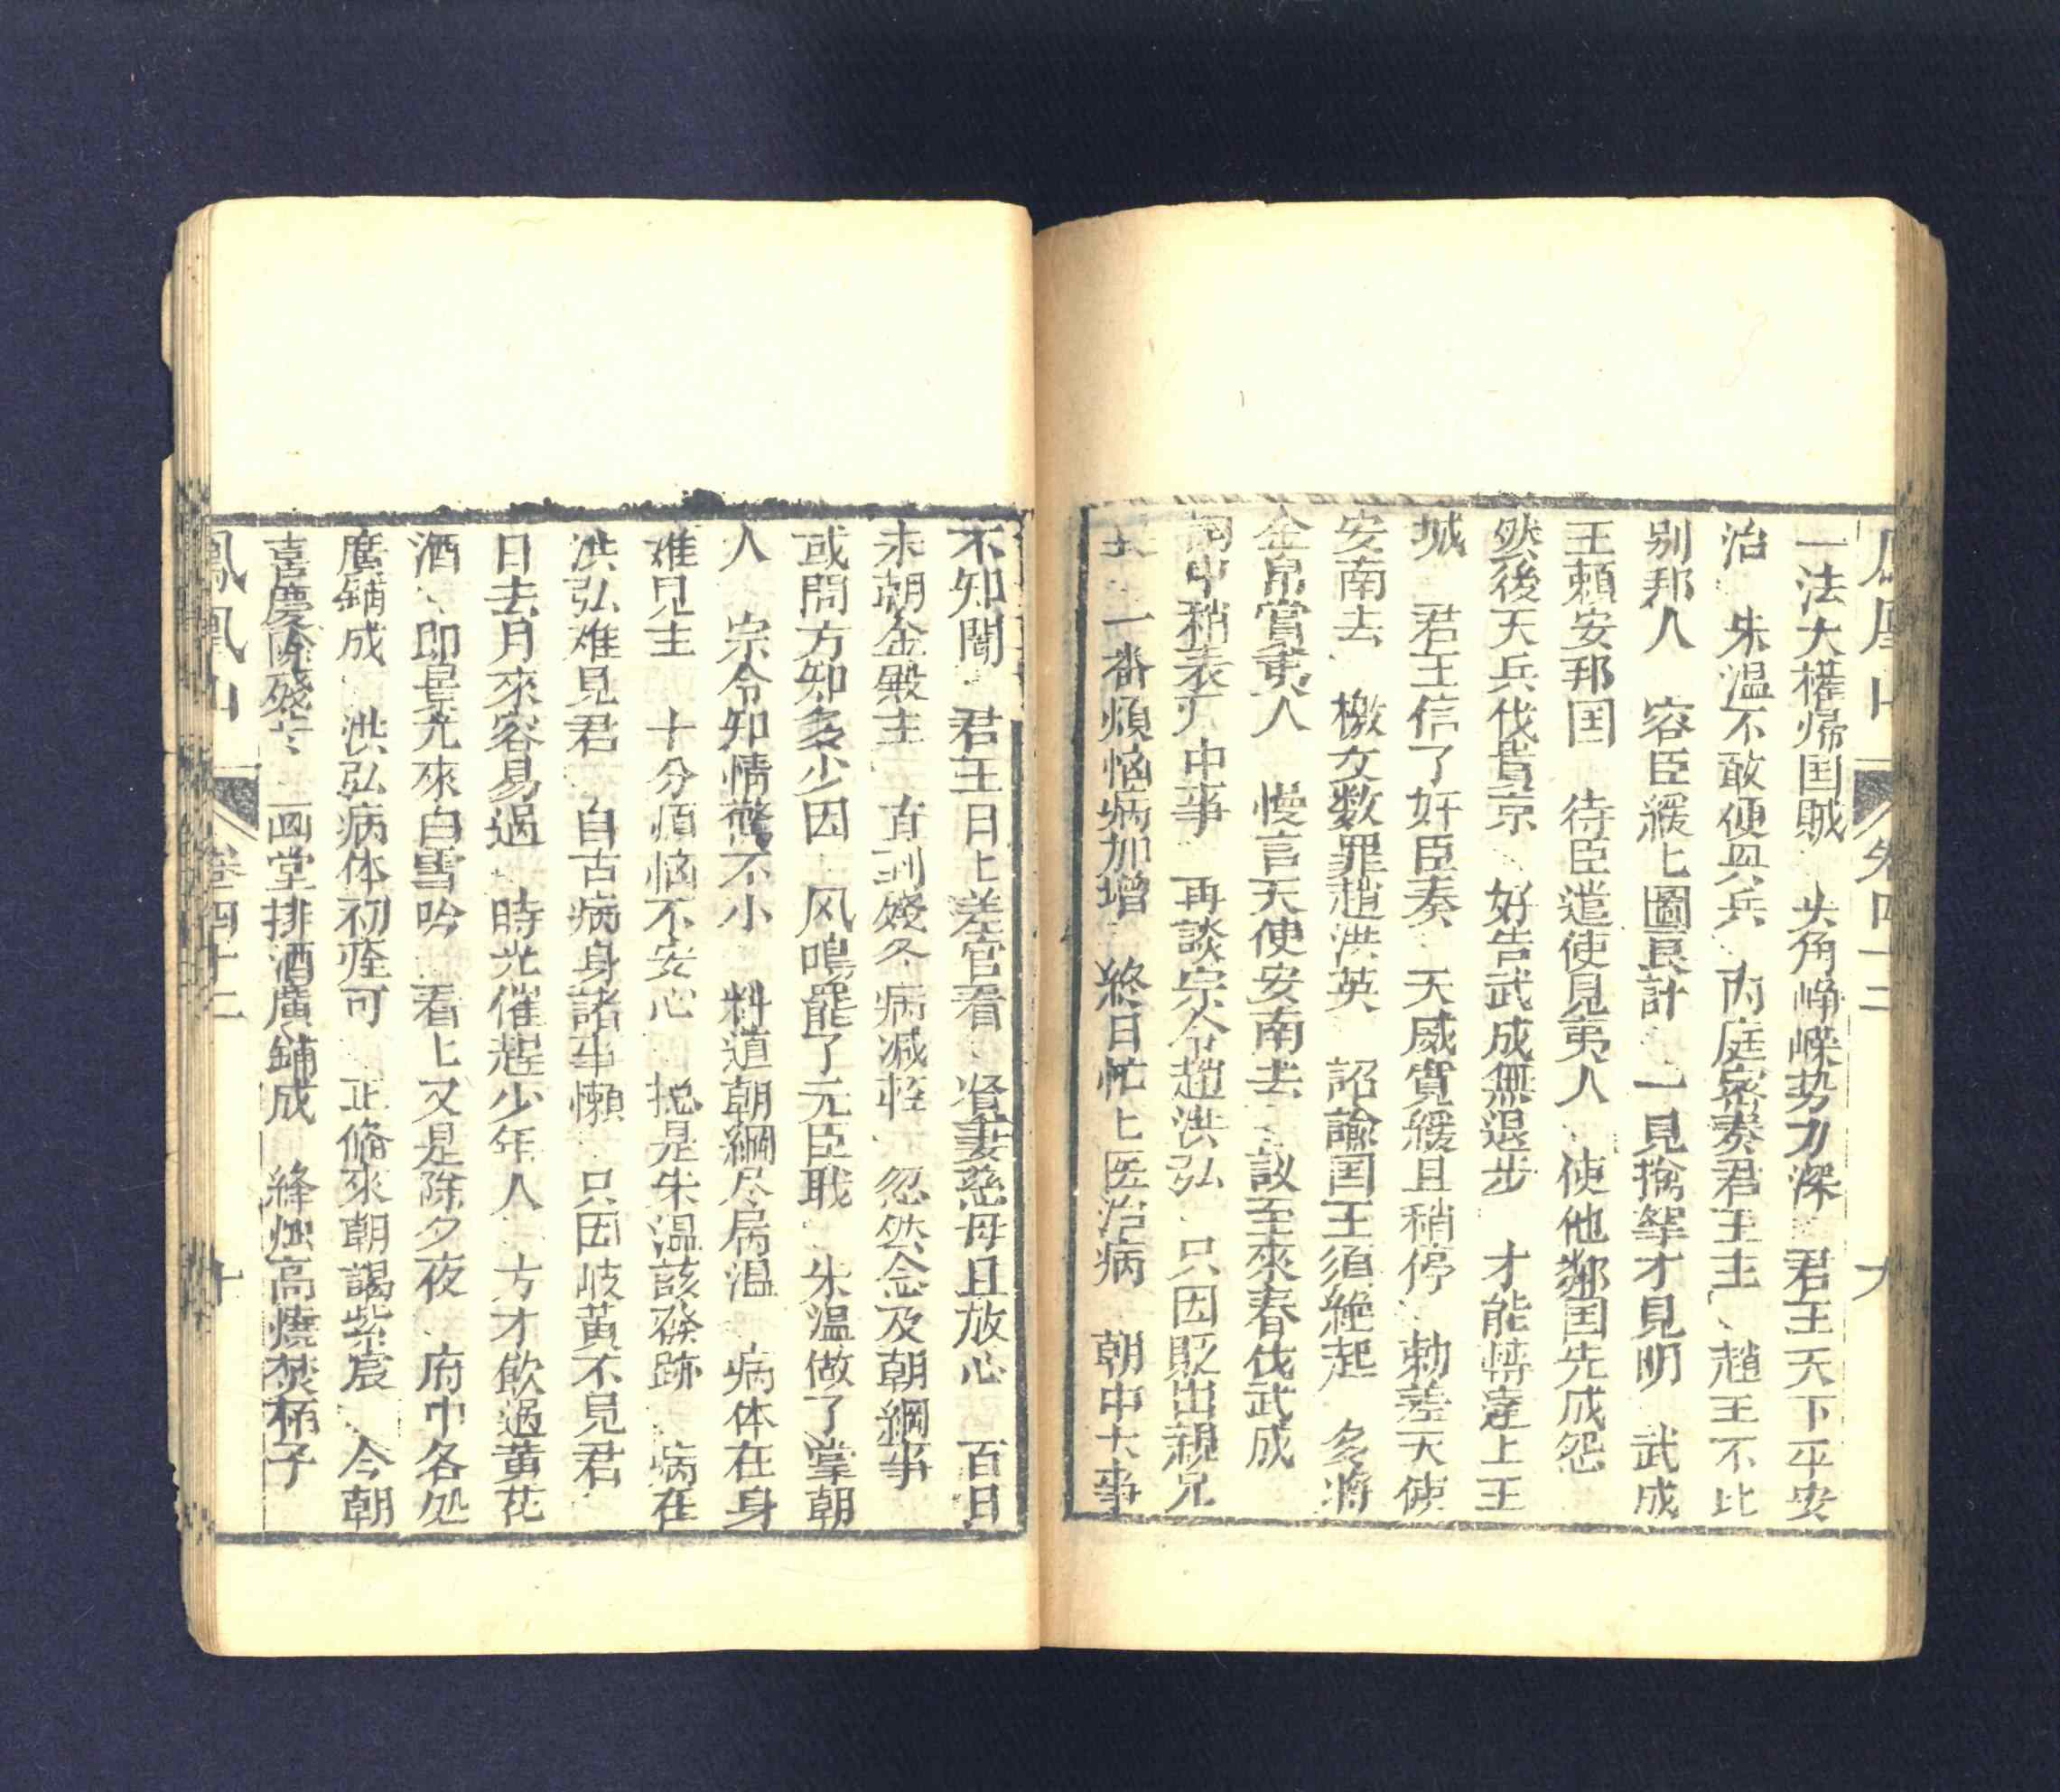 一法大權帰国賊 头角崢嶸势力深 君王天下平安
治 朱温不敢便興兵 内庭密奏君王主 趙王不比
别邦人 容臣緩上圖良計 一見擒拏才見明 武成
王頼安邦国 待臣遣使見夷人 使他鄰国先成怨
然後天兵伐貴京 好告武成無退步 才能轉達上王
城 君王信了奸臣奏 天威寬緩且稍停 勅差天使
安南去 檄文数罪趙洪英 詔諭国王須絶起 多將
金帛賞夷人 慢言天使安南去 議至來春伐武成
閣中稍表 中事 再談宗令趙洪弘 只因貶出親兄
去 一番煩惱病加增 終日忙上医治病 朝中大事
鳳凰山 卷四十二
不知聞 君王日上差官看 賢妻慈母且放心 百日
未朝金殿主 直到殘冬病減輕 忽然念及朝綱事
或問方知多少因 风鳴罷了元臣職 朱温做了掌朝
人 宗令知情驚不小 料道朝綱尽属温 病体在身
难見主 十分煩惱不安心 挽是朱温該發跡 病在
洪弘难見君 自古病身諸事懒 只因岐黃不見君
日去月來容易過 時光催趕少年人 方才飲過黃花
酒 即景尤來白雪吟 看上又是除夕夜 府中各処
廣鋪成 洪弘病体初痊可 正脩來朝謁紫宸 今朝
喜慶除殘 画堂排酒廣鋪成 絳燭高燒焚栢子
鳳凰山 卷四十二 十